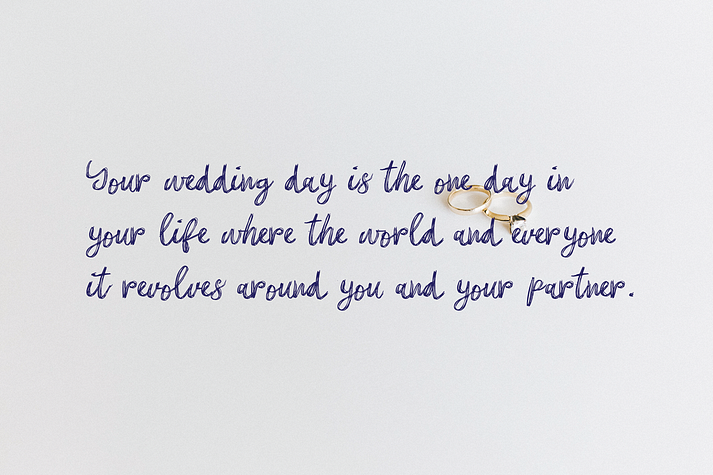 Your wedding day is the one day in
your life where the world and everyone
it revolves around you and your partner.